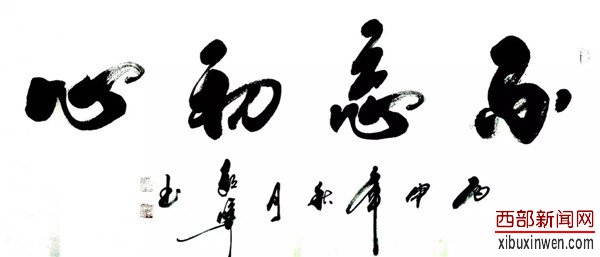 不忘初心
丙申年秋月 书
西部新闻网
xibuxinwen.com